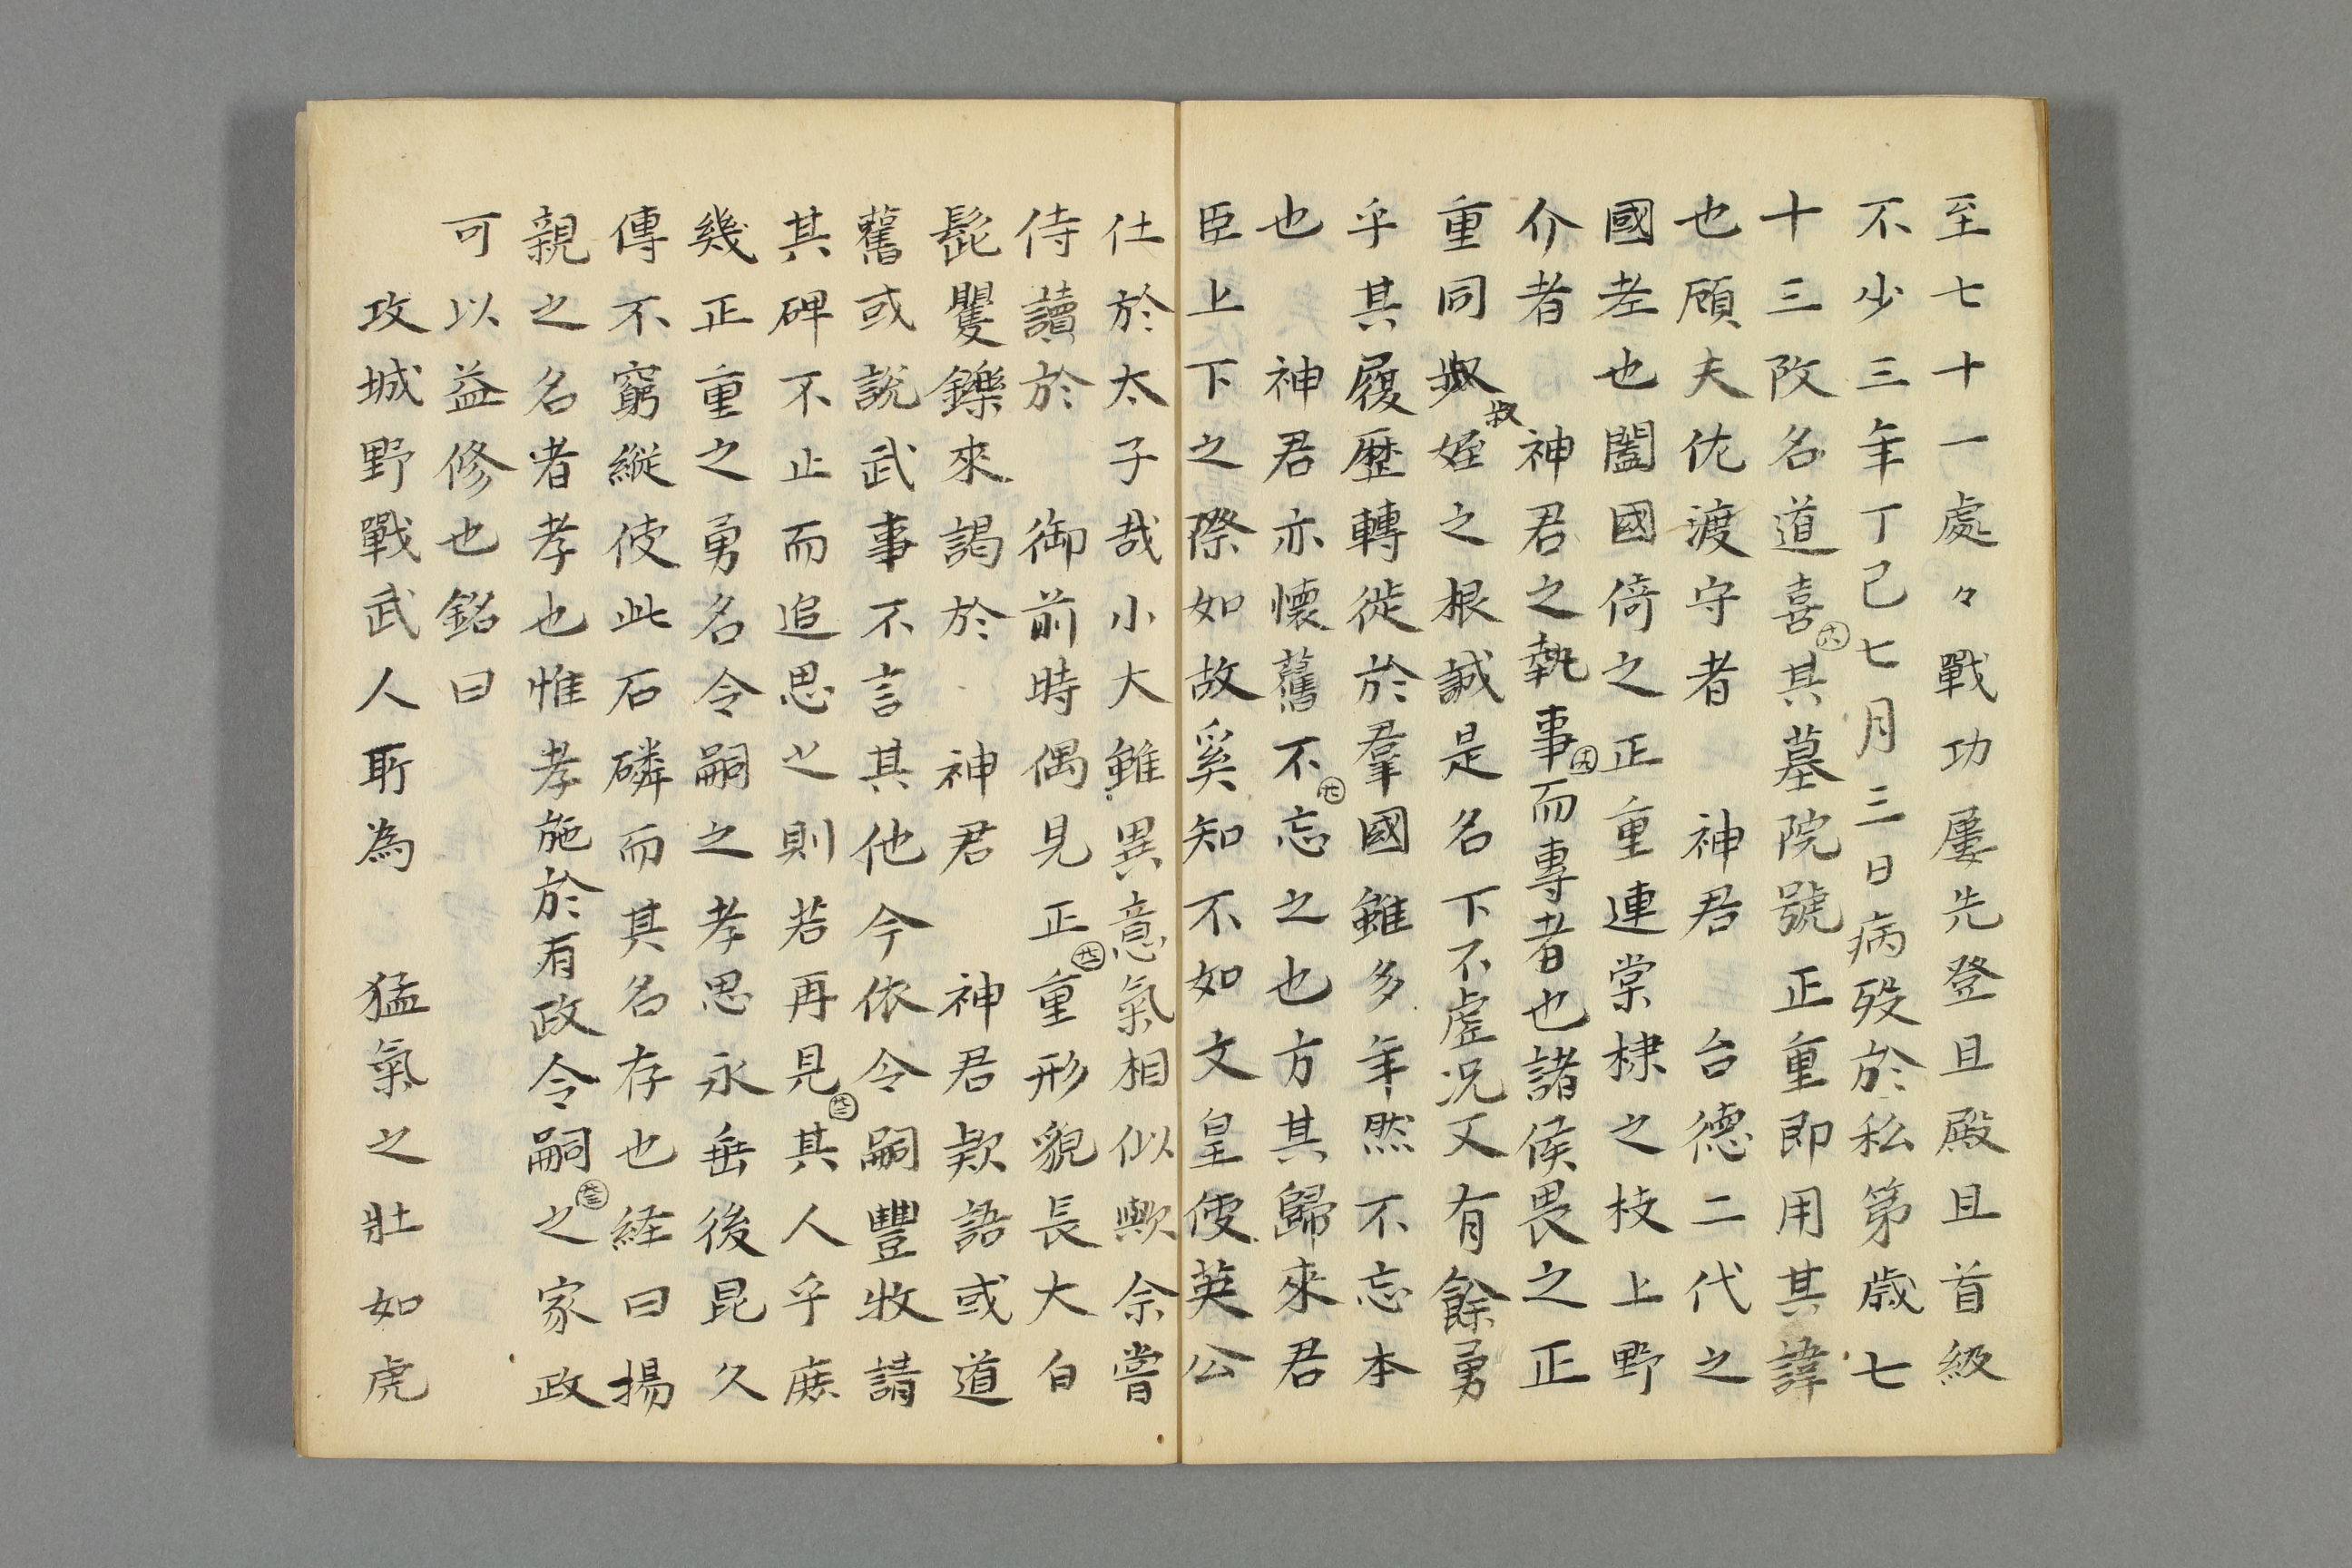 至七十一處々戰功屢先登且殿且首級
不少三年丁己七月三日病歿於私第歳七
十三改名道喜㊅其墓院號正重即用其諱
也頋夫佐渡守者　神君　台德二代之
國老也闔國倚之正重連棠棣之枝上野
介者　神君之執事而專者也諸侯畏之正
重同叔姪之根誠是名下不虛况又有餘勇
叔
乎其履歷轉徙於羣國雖多年㷊不忘本
也　神君亦懷舊不忘之也方其歸來君
臣上下之際如故奚知不如文皇使英公
仕於太子哉小大雖異意氣相似歟余嘗
侍讀於　御前時偶見正重形貌長大白
髭矍鑠來謁於　神君　神君欵語或道
舊或說武事不言其他今依令嗣豐牧請
其碑不止而追思之則若再見其人乎庶
幾正重之勇名令嗣之孝思永垂後昆久
傳不窮縦使此石磷而其名存也経曰揚
親之名者孝也惟孝施於有政令嗣之家政
可以益修也銘曰
攻城野戰武人所為　猛氣之壯如虎